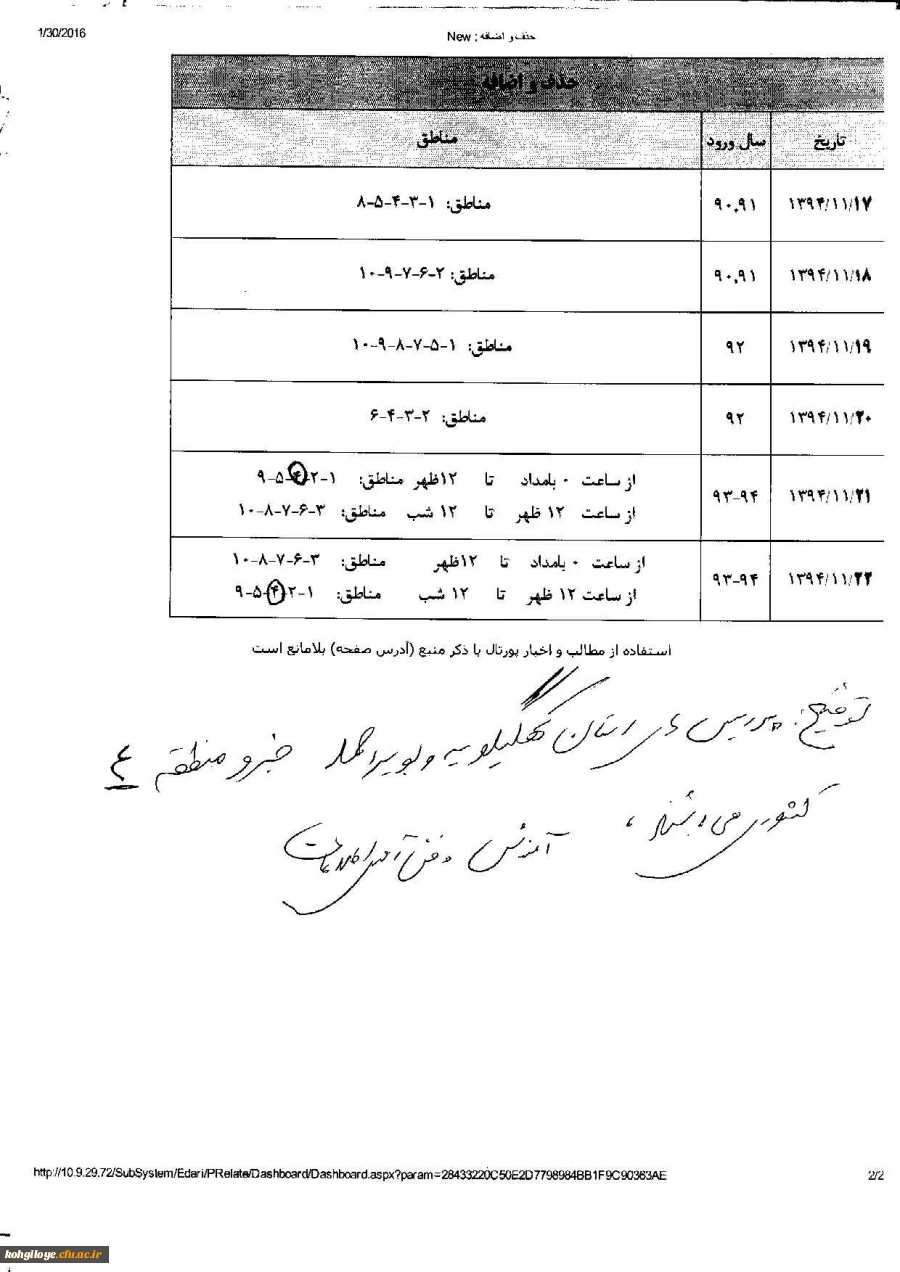 1/30/2016
حذف و اضافه : New
حذف و اضافه
تاریخ سال ورود مناطق
۱۳۹۴/۱۱/۱۷ ۹۰،۹۱ مناطق: ۱-۳-۴-۵-۸
۱۳۹۴/۱۱/۱۸ ۹۰،۹۱ مناطق: ۲-۶-۷-۹-۱۰
۱۳۹۴/۱۱/۱۹ ۹۲ مناطق: ۱-۵-۷-۸-۹-۱۰
۱۳۹۴/۱۱/۲۰ ۹۲ مناطق: ۲-۳-۴-۶
۱۳۹۴/۱۱/۲۱ ۹۳-۹۴ از ساعت ۰ بامداد تا ۱۲ظهر مناطق: ۱-۲-۴-۵-۹
از ساعت ۱۲ ظهر تا ۱۲ شب مناطق: ۳-۶-۷-۸-۱۰
۱۳۹۴/۱۱/۲۲ ۹۳-۹۴ از ساعت ۰ بامداد تا ۱۲ظهر مناطق: ۳-۶-۷-۸-۱۰
از ساعت ۱۲ ظهر تا ۱۲ شب مناطق: ۱-۲-۴-۵-۹
استفاده از مطالب و اخبار پورتال با ذکر منبع (آدرس صفحه) بلامانع است
توضیح: پردیس های استان کهگیلویه و بویراحمد جزو منطقه ۴
کشوری می باشند، آموزش و فن آوری اطلاعات
http://10.9.29.72/SubSystem/Edari/PRelate/Dashboard/Dashboard.aspx?param=28433220C50E2D7798984BB1F9C90363AE 2/2
kohgiloye.cfu.ac.ir